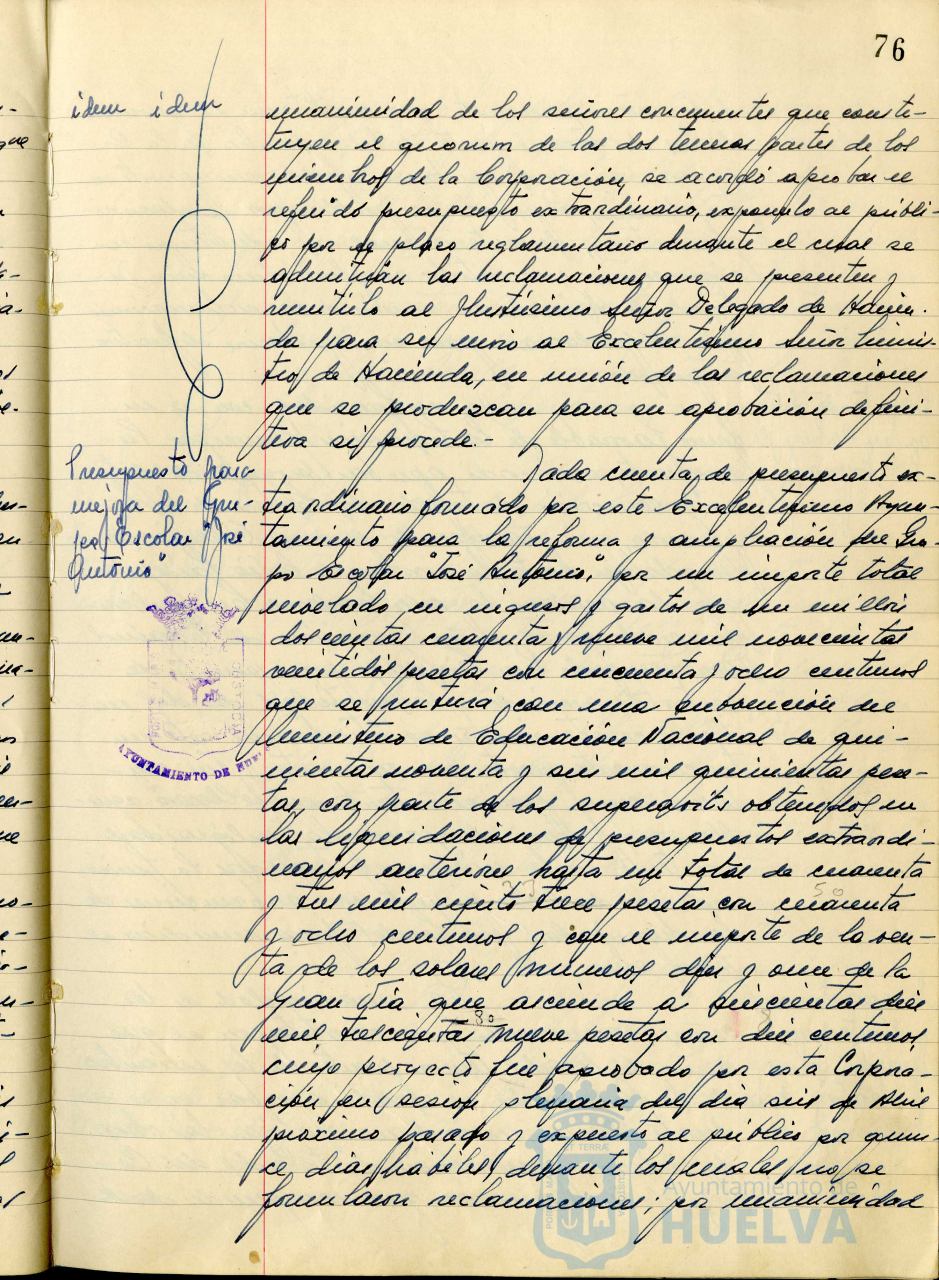 76
idem idem
unanimidad de los señores concurrentes que consti-
tuyen el quorum de las dos terceras partes de los
miembros de la Corporación, se acordó aprobar el
referido presupuesto extraordinario, exponerlo al públi-
co por el plazo reglamentario durante el cual se
admitirán las reclamaciones que se presenten y
remitirlo al Ilustrísimo Señor Delegado de Hacien-
da para su envío al Excelentísimo Señor Minis-
tro de Hacienda, en unión de las reclamaciones
que se produzcan para su aprobación defini-
tiva si procede.-
Presupuesto para
mejora del Gru-
po Escolar "José
Antonio"
Dada cuenta de presupuesto ex-
traordinario formado por este Excelentísimo Ayun-
tamiento para la reforma y ampliación del Gru-
po Escolar "José Antonio", por un importe total
nivelado en ingresos y gastos de un millón
doscientas cuarenta y nueve mil novecientas
veintidós pesetas con cincuenta y ocho centimos
que se nutrirá con una subvención del
Ministerio de Educación Nacional de qui-
nientas noventa y seis mil quinientas pese-
tas, con parte de los superavits obtenidos en
las liquidaciones de presupuestos extraordi-
narios anteriores hasta un total de cuarenta
y tres mil ciento trece pesetas con cuarenta
y ocho centimos y con el importe de la ven-
ta de los solares números diez y once de la
Gran Vía que asciende a seiscientas diez
mil trescientas nueve pesetas con diez centimos,
cuyo proyecto fué aprobado por esta Corpora-
ción en sesión plenaria del día seis de Abril
próximo pasado y expuesto al público por quin-
ce días hábiles, durante los cuales no se
formularon reclamaciones; por unanimidad
AYUNTAMIENTO DE HUEL
Ayuntamiento de
HUELVA